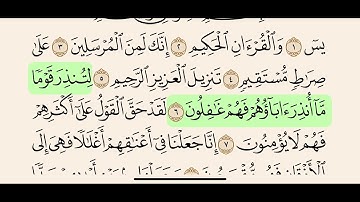 يسٓ ١ وَٱلْقُرْءَانِ ٱلْحَكِيمِ ٢ إِنَّكَ لَمِنَ ٱلْمُرْسَلِينَ ٣ عَلَىٰ
صِرَٰطٍ مُّسْتَقِيمٍ ٤ تَنزِيلَ ٱلْعَزِيزِ ٱلرَّحِيمِ ٥ لِتُنذِرَ قَوْمًا
مَّآ أُنذِرَ ءَابَآؤُهُمْ فَهُمْ غَٰفِلُونَ ٦ لَقَدْ حَقَّ ٱلْقَوْلُ عَلَىٰٓ أَكْثَرِهِمْ
فَهُمْ لَا يُؤْمِنُونَ ٧ إِنَّا جَعَلْنَا فِىٓ أَعْنَٰقِهِمْ أَغْلَٰلًا فَهِىَ إِلَى